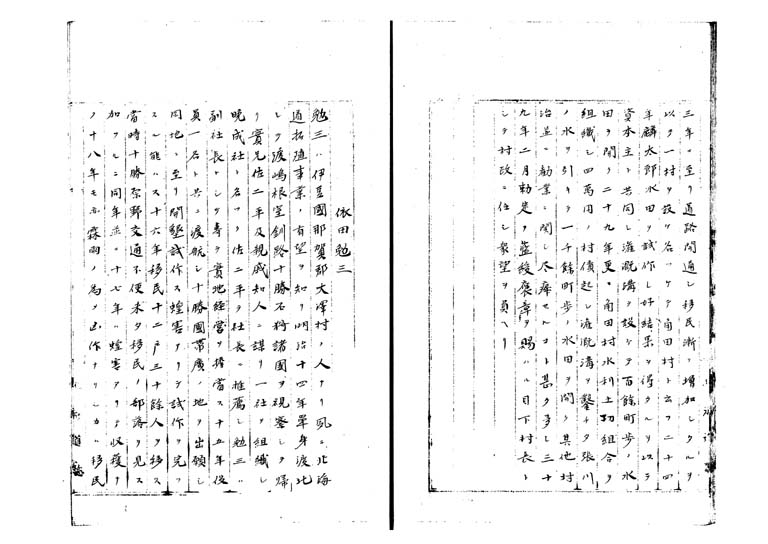 三年ニ至リ道路開通シ移民漸ク増加シタルヲ
以テ一村ヲ設ケ名ツケテ角田村ト云フ二十四
年麟太郎水田ヲ試作シ好結果ヲ得タルヲ以テ
資本主ト共同シ灌漑溝ヲ設ケテ百餘町歩ノ水
田ヲ開ク二十九年更ニ角田村水利土功組合ヲ
組織シ四萬円ノ村債起シ灌漑溝ヲ鑿チタ張川
ノ水ヲ引キテ一千餘町歩ノ水田ヲ開ク其他村
治並ニ勧業ニ関シ尽瘁セルコト甚タ多シ三十
九年二月勅定ノ藍綬褒章ヲ賜ハル目下村長ト
シテ村政ニ任シ衆望ヲ負ヘリ
依田勉三
勉三ハ伊豆國那賀郡大澤村ノ人ナリ夙ニ北海
道拓殖事業ノ有望ヲ知リ明治十四年單身渡北
シテ渡嶋根室釧路十勝石狩諸國ヲ視察シテ歸
リ實兄佐二平及親戚知人ニ謀リ一社ヲ組織シ
晩成社ト名ツケ佐二平ヲ社長ニ推薦シ勉三ハ
副社長トシテ専ラ實地経営ヲ擔當ス十五年役
員一名ト共ニ渡航シ十勝國帯廣ノ地ヲ出願シ
同地ニ至リ開墾試作ス蝗害ヲ テ試作ヲ完フ
スル能ハス十六年移民十二戸三十餘人ヲ移ス
當時十勝原野交通不便未タ移民ノ部落ヲ見ス
加フルニ同年並ニ十七年ハ蝗害 収穫ヲ
ノ十八年モ亦霖雨ノ為メ凶作ナリシカハ移民